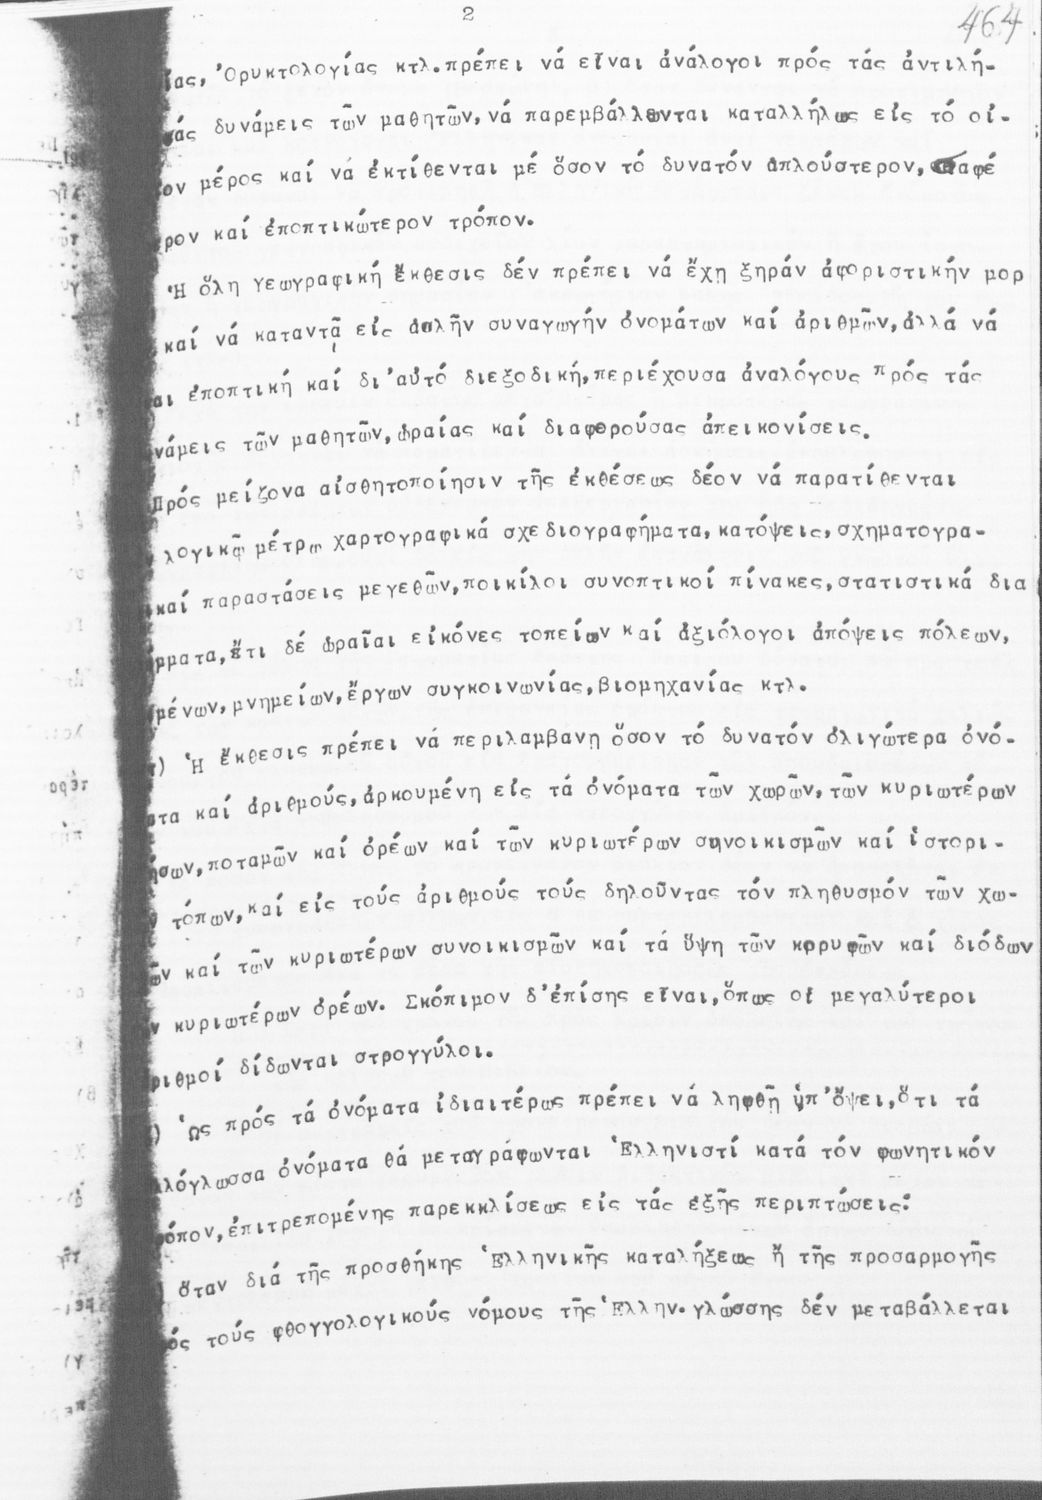 2
464
ίας, Ὀρυκτολογίας κτλ. πρέπει νά εἶναι ἀνάλογοι πρός τάς ἀντιλή-
άς δυνάμεις τῶν μαθητῶν, νά παρεμβάλλωνται καταλλήλως εἰς τό οἰ-
ον μέρος καί νά ἐκτίθενται μέ ὅσον τό δυνατόν ἁπλούστερον, σαφέ
ρον καί ἐποπτικώτερον τρόπον.
Ἡ ὅλη γεωγραφική ἔκθεσις δέν πρέπει νά ἔχη ξηράν ἀφοριστικήν μορ
καί νά καταντᾷ εἰς ἁπλῆν συναγωγήν ὀνομάτων καί ἀριθμῶν, ἀλλά νά
αι ἐποπτική καί δι'αὐτό διεξοδική, περιέχουσα ἀναλόγους πρός τάς
νάμεις τῶν μαθητῶν, ὡραίας καί διαφερούσας ἀπεικονίσεις.
Πρός μείζονα αἰσθητοποίησιν τῆς ἐκθέσεως δέον νά παρατίθενται
λογικῷ μέτρῳ χαρτογραφικά σχεδιογραφήματα, κατόψεις, σχηματογρα-
καί παραστάσεις μεγεθῶν, ποικίλοι συνοπτικοί πίνακες, στατιστικά δια
μματα, ἔτι δέ ὡραῖαι εἰκόνες τοπείων καί ἀξιόλογοι ἀπόψεις πόλεων,
μένων, μνημείων, ἔργων συγκοινωνίας, βιομηχανίας κτλ.
) Ἡ ἔκθεσις πρέπει νά περιλαμβανη ὅσον τό δυνατόν ὀλιγώτερα ὀνό-
ατα καί ἀριθμούς, ἀρκουμένη εἰς τά ὀνόματα τῶν χωρῶν, τῶν κυριωτέρων
ήσων, ποταμῶν καί ὀρέων καί τῶν κυριωτέρων συνοικισμῶν καί ἱστορι-
τόπων, καί εἰς τούς ἀριθμούς τούς δηλοῦντας τόν πληθυσμόν τῶν χω-
ῶν καί τῶν κυριωτέρων συνοικισμῶν καί τά ὕψη τῶν κορυφῶν καί διόδων
ν κυριωτέρων ὀρέων. Σκόπιμον δ'ἐπίσης εἶναι, ὅπως οἱ μεγαλύτεροι
ριθμοί δίδωνται στρογγύλοι.
) Ὡς πρός τά ὀνόματα ἰδιαιτέρως πρέπει νά ληφθῇ ὑπ'ὄψει, ὅτι τά
λόγλωσσα ὀνόματα θά μεταγράφωνται Ἑλληνιστί κατά τόν φωνητικόν
όπον, ἐπιτρεπομένης παρεκκλίσεως εἰς τάς ἑξῆς περιπτώσεις:
) ὅταν διά τῆς προσθήκης Ἑλληνικῆς καταλήξεως ἤ τῆς προσαρμογῆς
ός τούς φθογγολογικούς νόμους τῆς Ἑλλην. γλώσσης δέν μεταβάλλεται